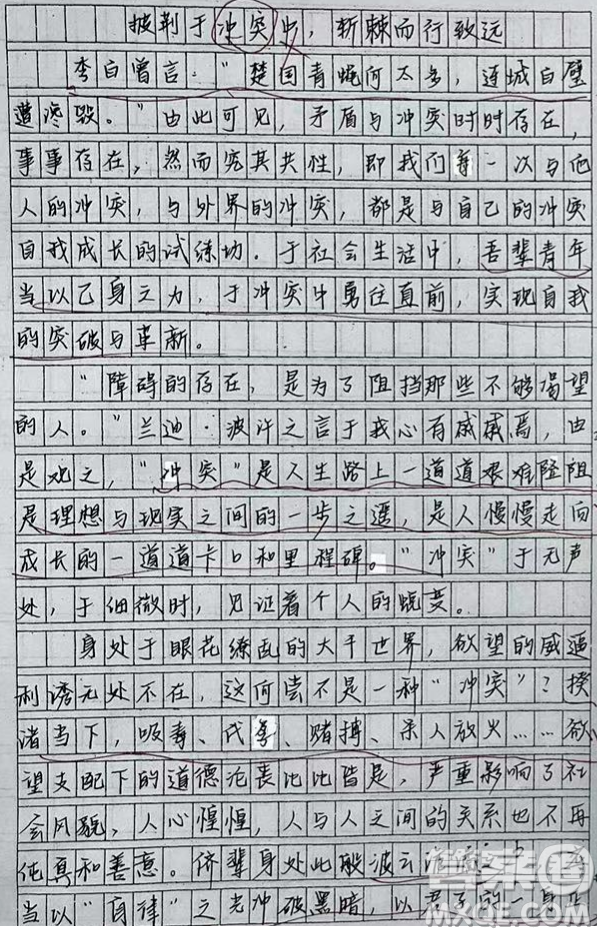 披荆于冲突中，斩棘而行致远
李白曾言："楚国青蝇何太多，连城白璧
遭谗毁。"由此可见，矛盾与冲突时时存在，
事事存在，然而究其共性，即我们每一次与他
人的冲突，与外界的冲突，都是与自己的冲突
自我成长的试练场。于社会生活中，吾辈青年
当以己身之力，于冲突中勇往直前，实现自我
的突破与革新。
"障碍的存在，是为了阻挡那些不够渴望
的人。"兰迪·波许之言于我心有戚戚焉，由
是观之，"冲突"是人生路上一道道艰难险阻
是理想与现实之间的一步之遥，是人慢慢走向
成长的一道道卡口和里程碑。"冲突"于无声
处，于细微时，见证着个人的蜕变。
身处于眼花缭乱的大千世界，欲望的威逼
利诱无处不在，这何尝不是一种"冲突"？揆
诸当下，吸毒、代孕、赌搏、杀人放火……欲
望支配下的道德沦丧比比皆是，严重影响了社
会风貌，人心惶惶，人与人之间的关系也不再
纯真和善意。侪辈身处此般波云
当以"自律"之光冲破黑暗，以君子的一身正
答案圈
MXQE.COM